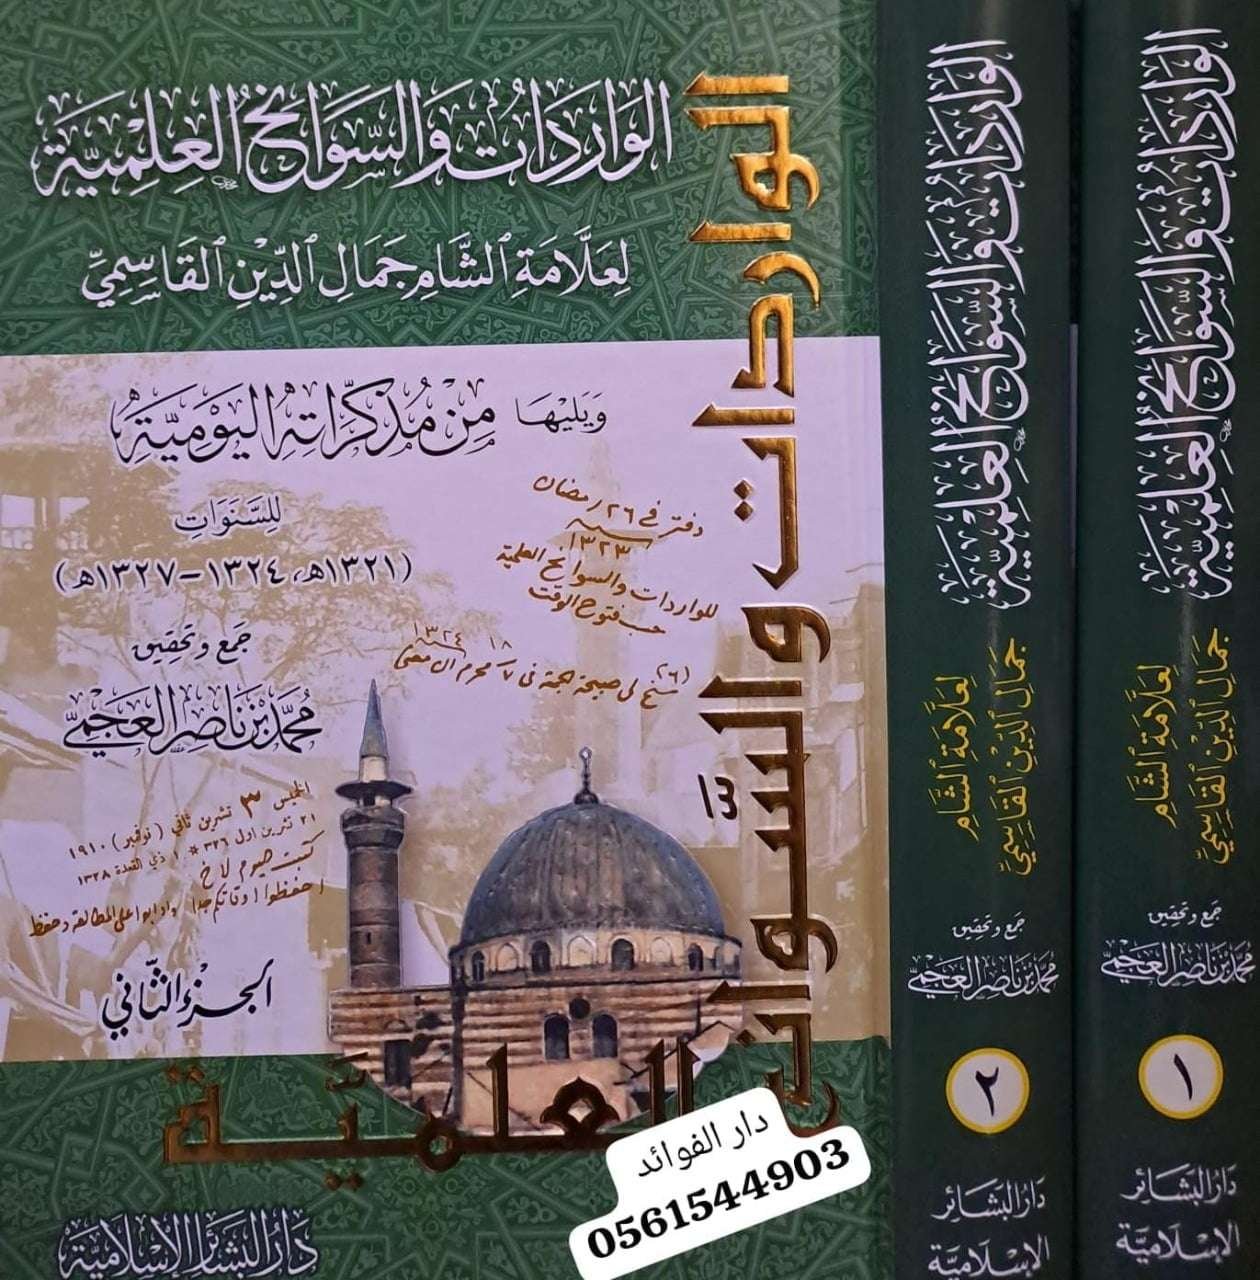 الواردات والسوانح العلمية
لعلامة الشام جمال الدين القاسمي
ويليها من مذكراته اليومية
للسنوات
(١٣٢١هـ، ١٣٢٤-١٣٢٧هـ)
جمع وتحقيق
محمد بن ناصر العجمي
دفتر في ٢٦ رمضان
سنة ١٣٢٣
للواردات والسوانح العلمية
حسب فتوح الوقت
الخميس ٣ تشرين ثاني (نوفمبر) ١٩١٠
٢١ تشرين اول ٣٢٦ * ١ ذي القعدة ١٣٢٨
احفظوا اوقاتكم جدا وادأبوا على المطالعة وحفظ
الجزء الثاني
الواردات والسوانح
العلمية
دار البشائر الإسلامية
دار الفوائد
0561544903
الواردات والسوانح العلمية
لعلامة الشام
جمال الدين القاسمي
جمع وتحقيق
محمد بن ناصر العجمي
٢
دار البشائر
الإسلامية
الواردات والسوانح العلمية
لعلامة الشام
جمال الدين القاسمي
جمع وتحقيق
محمد بن ناصر العجمي
١
دار البشائر
الإسلامية